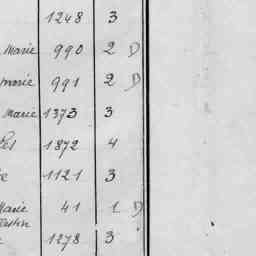 1248 3
Marie 990 2 D
marie 991 2 D
Marie 1373 3
1872 4
1121 3
Marie 41 1 D
1278 3